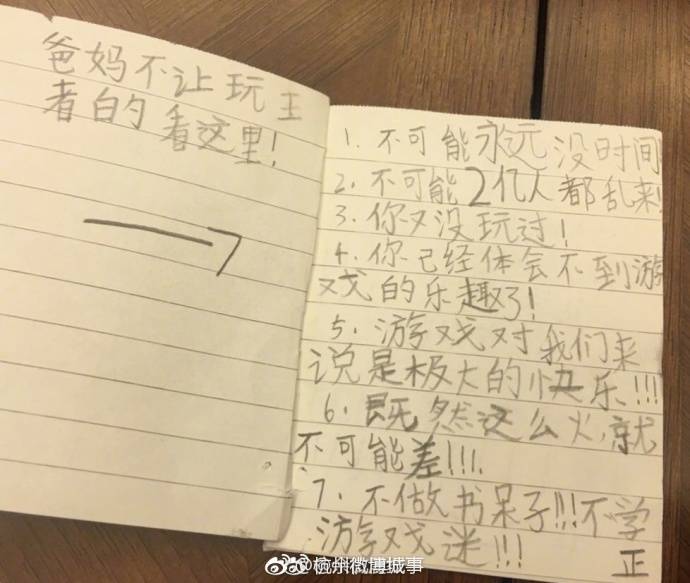 爸妈不让玩王
者的看这里!
1. 不可能永远没时间
2. 不可能2亿人都乱来!
3. 你又没玩过!
4. 你已经体会不到游
戏的乐趣了!
5. 游戏对我们来
说是极大的快乐!!!
6. 既然这么火,就
不可能差!!!
7. 不做书呆子!!!不学
游戏迷!!!
正
@杭州微博城事